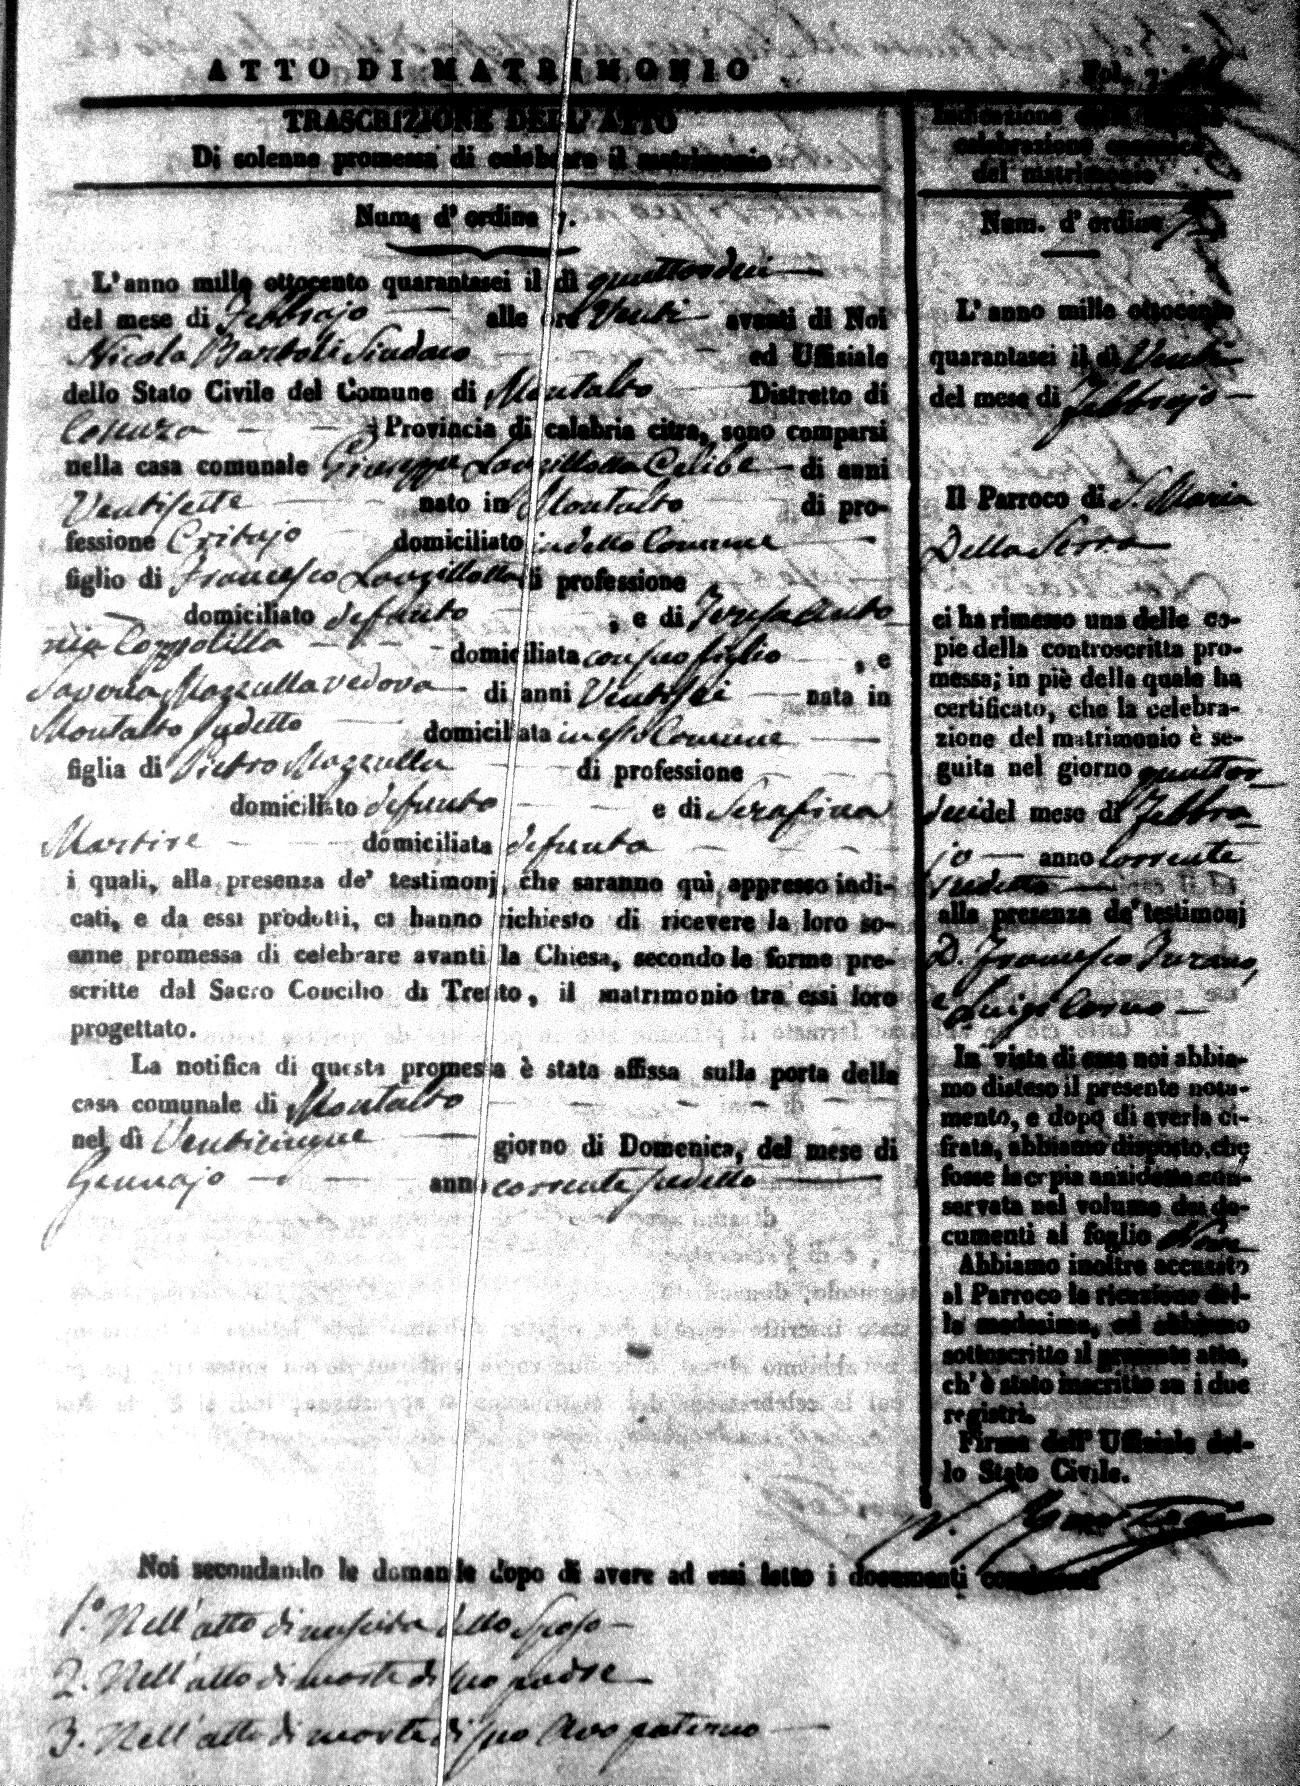 ATTO DI MATRIMONIO
TRASCRIZIONE DELL' ATTO
Di solenne promessa di celebrare il matrimonio
Num. d' ordine 7.
L' anno mille ottocento quarantasei il dì quattordici
del mese di Febbrajo alle ore Venti avanti di Noi
Nicola Bartoli Sindaco ed Uffisiale
dello Stato Civile del Comune di Montalto Distretto di
Cosenza Provincia di calabria citra, sono comparsi
nella casa comunale Giuseppe Lanzillotta Celibe di anni
Ventisette nato in Montalto di pro-
fessione Cribajo domiciliato in detto Comune
figlio di Francesco Lanzillotta di professione
domiciliato defunto , e di Teresa Anto
nia Cozzolilla domiciliata con suo figlio , e
Saveria Mazzulla vedova di anni Ventisei nata in
Montalto sudetto domiciliata in esso Comune
figlia di Pietro Mazzulla di professione
domiciliato defunto e di Serafina
Martire domiciliata defunta
i quali, alla presenza de' testimonj, che saranno quì appresso indi-
cati, e da essi prodotti, ci hanno richiesto di ricevere la loro so-
enne promessa di celebrare avanti la Chiesa, secondo le forme pre-
scritte dal Sacro Concilio di Trento, il matrimonio tra essi loro
progettato.
La notifica di questa promessa è stata affissa sulla porta della
casa comunale di Montalto
nel dì Venticinque giorno di Domenica, del mese di
Gennajo anno corrente sudetto
Noi secondando le domande dopo di avere ad essi letto i documenti
1.° Nell' atto di nascita dello Sposo
2. Nell' atto di morte di suo padre
3. Nell' atto di morte di suo Avo paterno
Fol.
Indicazione
celebrazione canonica
del matrimonio
Num. d' ordine 7
L' anno mille ottocento
quarantasei il dì Venti
del mese di Febbrajo
Il Parroco di S. Maria
Della Serra
ci ha rimesso una delle co-
pie della controscritta pro-
messa; in piè della quale ha
certificato, che la celebra-
zione del matrimonio è se-
guita nel giorno quattor
dici del mese di Febbra
jo anno corrente
sudetto
alla presenza de' testimonj
D. Francesco Turano,
e Luigi
In vista di essa noi abbia-
mo disteso il presente nota-
mento, e dopo di averla ci-
frata, abbiamo disposto, che
fosse la copia anzidetta con-
servata nel volume dei do-
cumenti al foglio
Abbiamo inoltre accusato
al Parroco la ricezione del-
la medesima, ed abbiamo
sottoscritto il presente atto,
ch' è stato inscritto su i due
registri.
Firma dell' Uffisiale del-
lo Stato Civile.